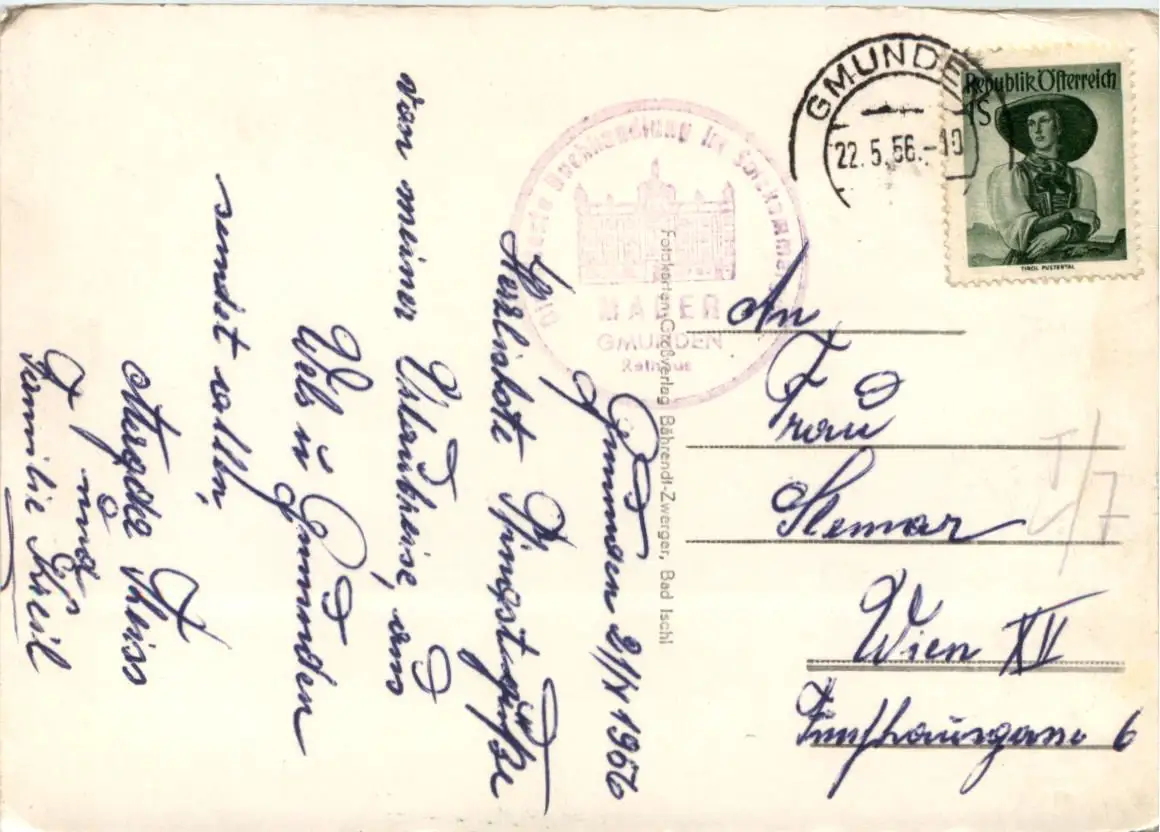 GMUNDEN
22.5.56.-10
Republik Österreich
1S
TIROL PUSTERTAL
Buchhandlung im Salzkammer
MADER
GMUNDEN
Rathaus
Fotokarten-Großverlag Bährendt-Zwerger, Bad Ischl
Gmunden 21/V 1956
Herzlichste Pfingstgrüße
von meiner Urlaubreise, aus
Wels u Gmunden
sendet allen,
und
Familie
An
Frau
Wien XV
Fünfhausgasse 6